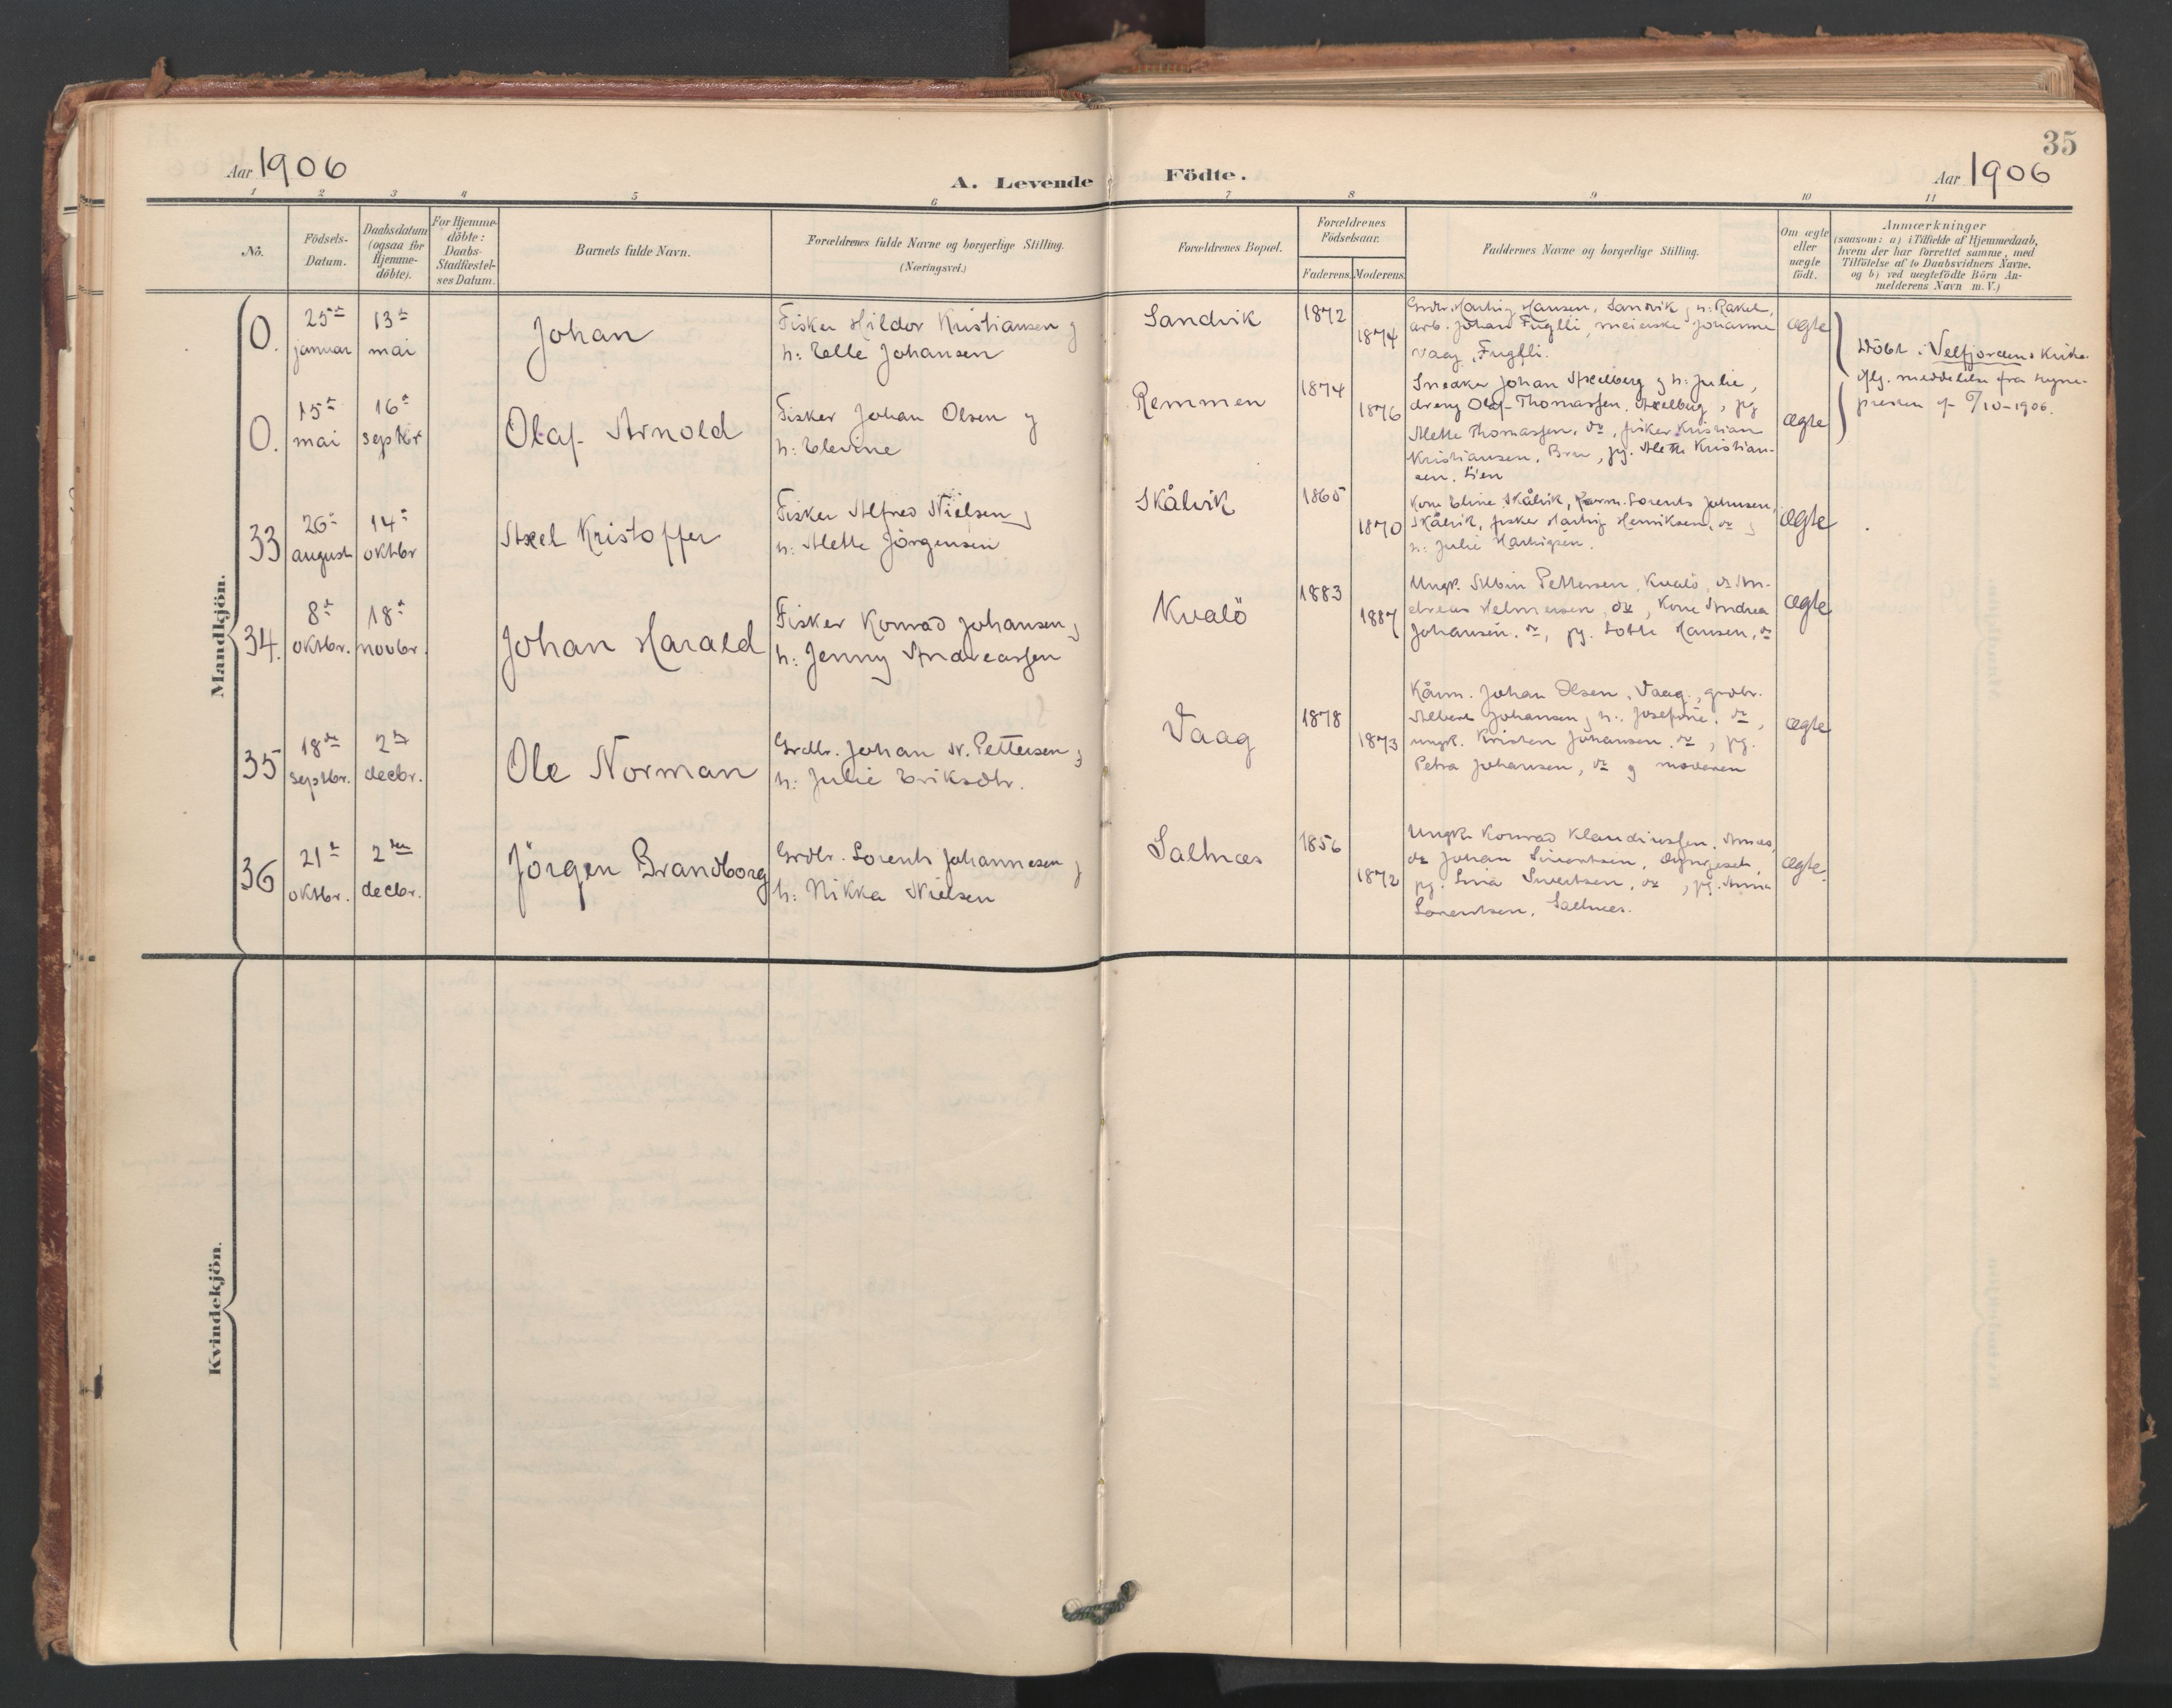 35
Aar 1906
A. Levende Födte.
Aar 1906
1 2 3 4 5 6 7 8 9 10 11
No.
Födsels-
Datum.
Daabsdatum
(ogsaa for
Hjemme-
döbte).
For Hjemme-
döbte:
Daabs-
Stadfæstel-
ses Datum.
Barnets fulde Navn.
Forældrenes fulde Navne og borgerlige Stilling.
(Næringsvei.)
Forældrenes Bopæl.
Forældrenes
Födselsaar.
Faderens. Moderens.
Faddernes Navne og borgerlige Stilling.
Om ægte
eller
uægte
födt.
Anmærkninger
(saasom: a) i Tilfælde af Hjemmedaab,
hvem der har forrettet samme, med
Tilföielse af to Daabsvidners Navne,
og b) ved uægtefödte Börn An-
melderens Navn m. V.)
Mandkjön.
0.
25de
januar
13de
mai
Johan
Fisker Hildor Kristiansen og
h: Elle Johansen
Sandvik
1872
1874
Grdbr. Hartvig Hansen, Sandvik, h: Rakel,
arb. Johan Fuglli, meierske Johanne
Vaag, Fuglli.
ægte
Döbt i Velfjordens Kirke
iflg. meddelelse fra sogne-
presten af 6/10-1906.
0.
15de
mai
16de
septbr
Olaf Arnold
Fisker Johan Olsen og
h: Elevine
Remmen
1874
1876
Snedker Johan Axelberg og h: Julie,
dreng Olaf Thomassen, Axelberg, pg
Alette Thomassen, do, fisker Kristian
Kristiansen, Bru, pg. Alette Kristian-
sen. Lien
ægte
33
26de
august
14de
oktbr
Axel Kristoffer
Fisker Alfred Nielsen og
h: Alette Jörgensen
Skålvik
1865
1870
Kone Eline Skålvik, Lorents Johnsen,
Skålvik, fisker Hartvig Henriksen, do og
h: Julie Hartvigsen.
ægte
34.
8de
oktbr.
18de
novbr.
Johan Harald
Fisker Konrad Johansen og
h: Jenny Andreassen
Kvalö
1883
1887
Ungk. Albin Pettersen, Kvalö, do An-
dreas Helmersen, do, Kone Andrea
Johansen. do, pg. Lotte Hansen, do
ægte
35
18de
septbr.
2den
decbr.
Ole Norman
Grdbr. Johan N. Pettersen og
h: Julie Eriksdtr.
Vaag
1878
1873
Kårm. Johan Olsen, Vaag, grdbr.
Albert Johansen og h: Josefine. do,
ungk. Kristen Johansen. do, pg.
Petra Johansen, do og moderen
ægte
36
21de
oktbr.
2den
decbr.
Jörgen Brandborg
Grdbr. Lorents Johannesen og
h: Nikka Nielsen
Saltnæs
1856
1872
Ungk. Konrad Klaudiussen,
do Johan Sivertsen,
pg. Lina Sivertsen, do, pg. Anna
Lorentsen, Saltnæs.
ægte.
Kvindekjön.